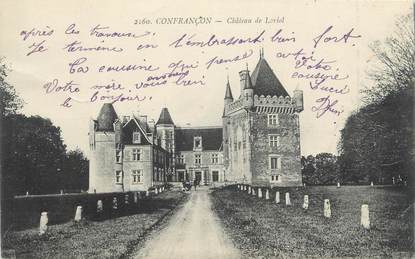 2160. CONFRANÇON - Château de Loriol
après les travaux.
Je termine en t'embrassant bien fort.
Ta cousine qui pense
à toi
Votre mère vous
le bonjour
Votre
cousine